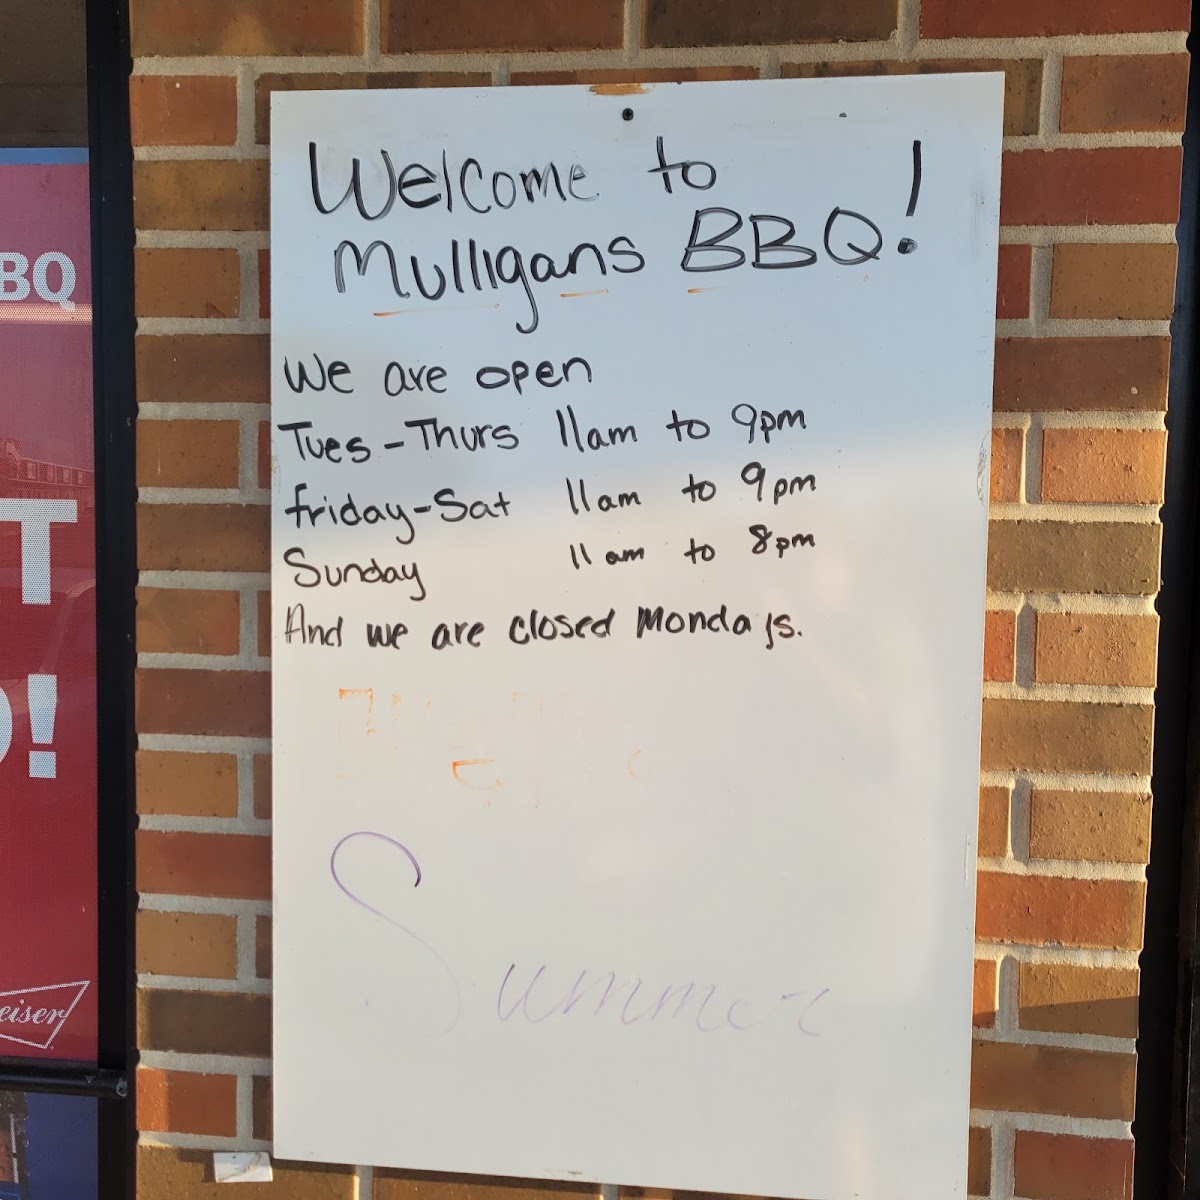 Welcome to
Mulligans BBQ!
We are open
Tues-Thurs 11am to 9pm
friday-Sat 11am to 9pm
Sunday 11am to 8pm
And we are closed Mondays.
Summer
BBQ
T
!
eiser